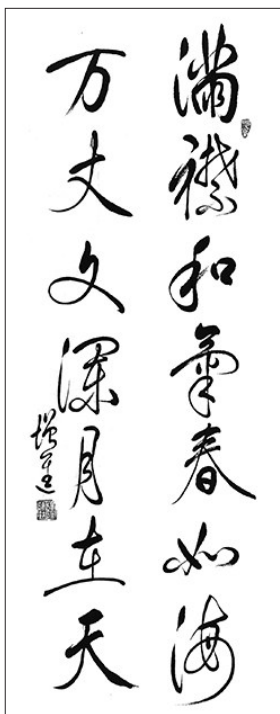 满襟和氣春如海
万丈文澜月在天